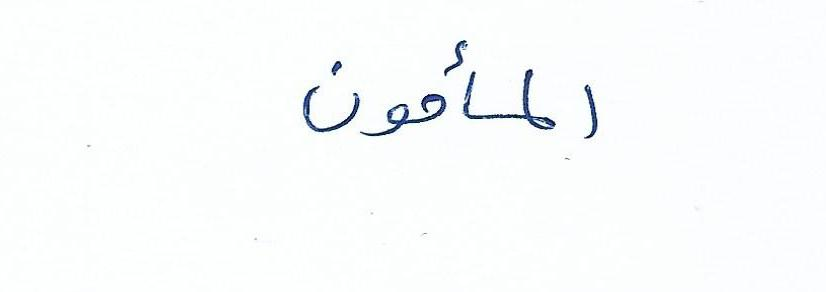 المأمون